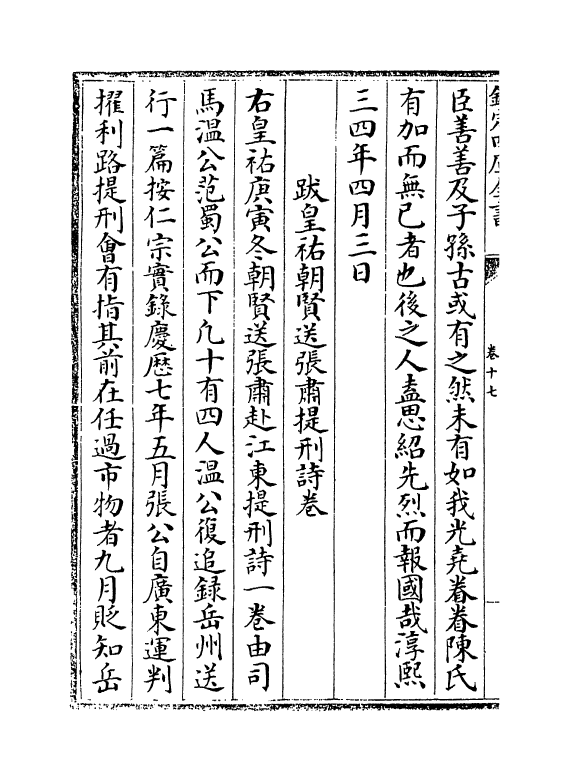 欽定四庫全書
卷十七
臣善善及子孫古或有之然未有如我光堯眷眷陳氏
有加而無已者也後之人盍思紹先烈而報國哉淳熙
三四年四月三日
跋皇祐朝賢送張肅提刑詩卷
右皇祐庚寅冬朝賢送張肅赴江東提刑詩一卷由司
馬溫公范蜀公而下凡十有四人溫公復追錄岳州送
行一篇按仁宗實錄慶歷七年五月張公自廣東運判
擢利路提刑會有指其前在任過市物者九月貶知岳